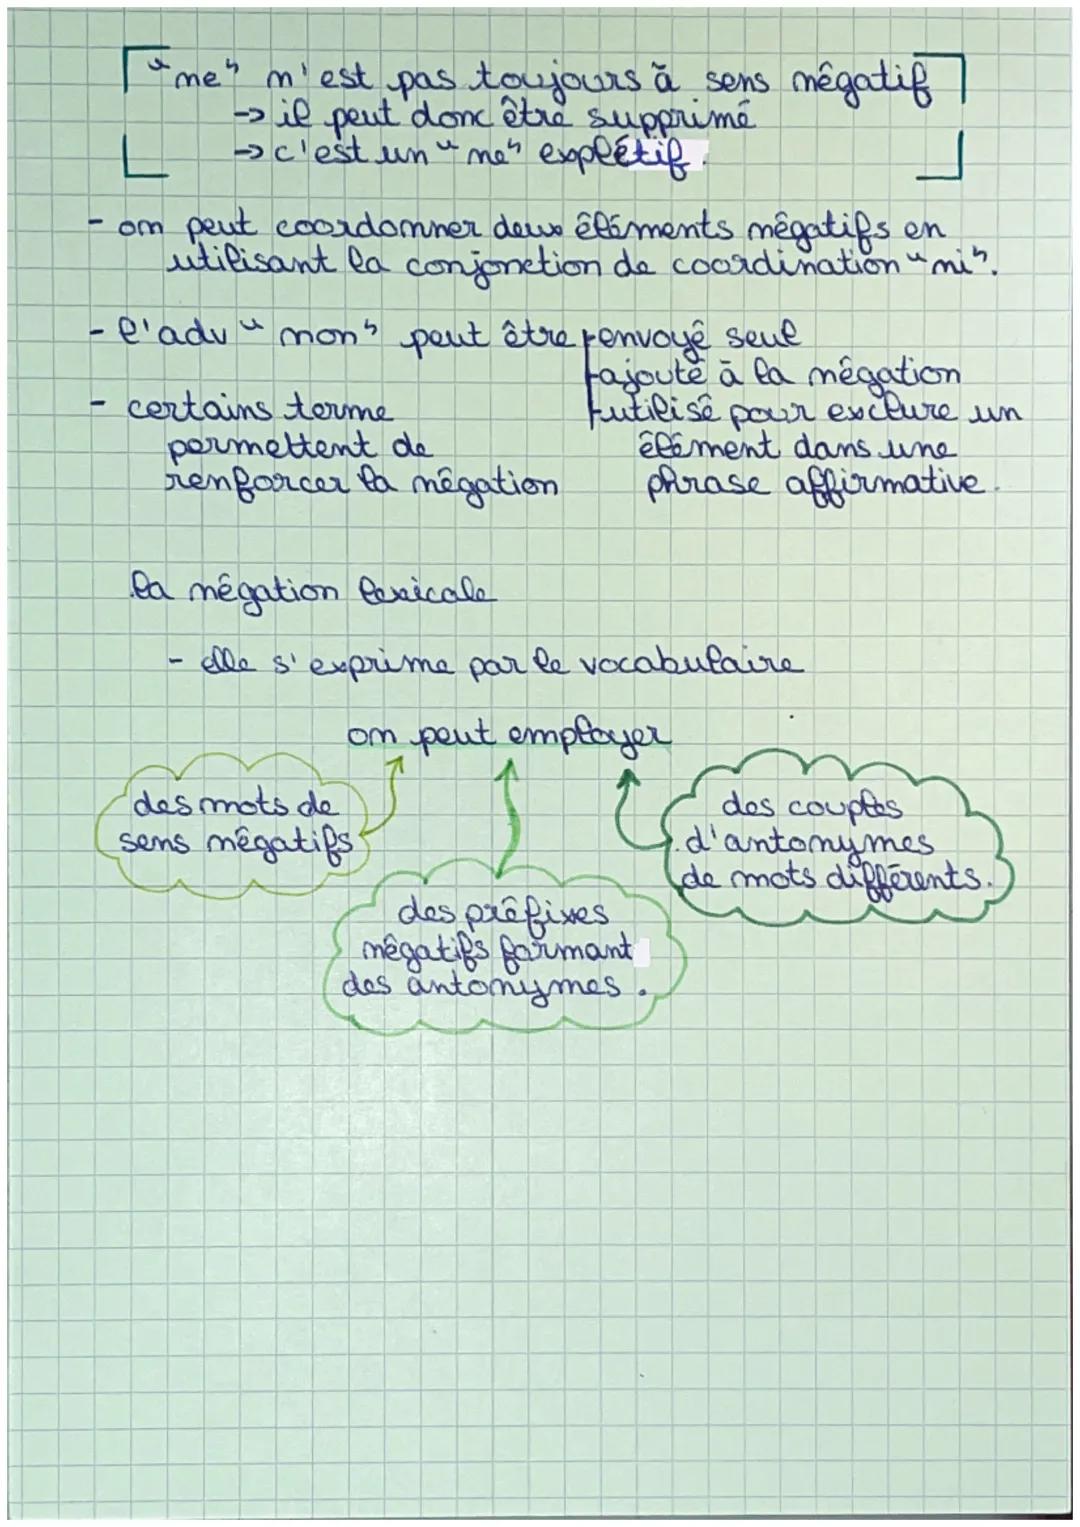 "ne" n'est pas toujours à sens négatif
→ il peut donc être supprimé
→ c'est un "ne" explétif.
- on peut coordonner deux éléments négatifs en
utilisant la conjonction de coordination "ni".
- l'adv "non" peut être renvoyé seul
ajouté à la négation
utilisé pour exclure un
élément dans une
phrase affirmative.
- certains terme
permettent de
renforcer la négation
la négation lexicale
- elle s'exprime par le vocabulaire
on peut employer
des mots de
sens négatifs
des préfixes
négatifs formant
des antonymes.
des couples
d'antonymes
de mots différents.